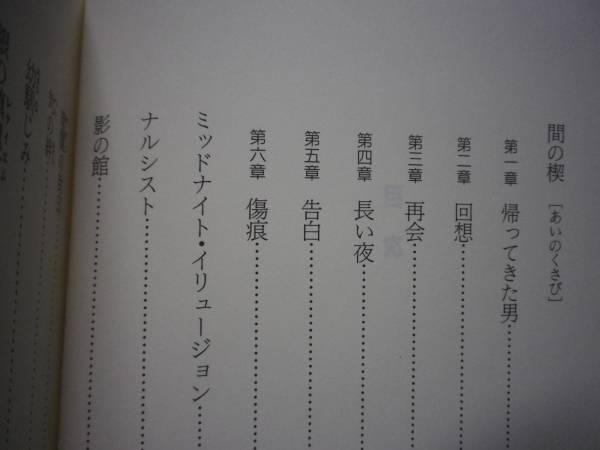 間の楔 [あいのくさび]
第一章 帰ってきた男
第二章 回想
第三章 再会
第四章 長い夜
第五章 告白
第六章 傷痕
ミッドナイト・イリュージョン
ナルシスト
影の館
幼馴じみ